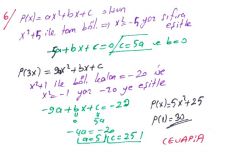 6) P(x)=ax²+bx+c olsun
x²+5 ile tam böl. ⇒ x²=-5 yaz sıfıra eşitle
-5a+bx+c=0 c=5a ve b=0
P(3x)=9ax²+bx+c
x²+1 ile böl. kalan=-20 ise
x²=-1 yaz -20 ye eşitle
-9a+bx+c=-20
0 5a
-4a=-20
a=5 c=25
P(x)=5x²+25
P(1)=30
CEVAP